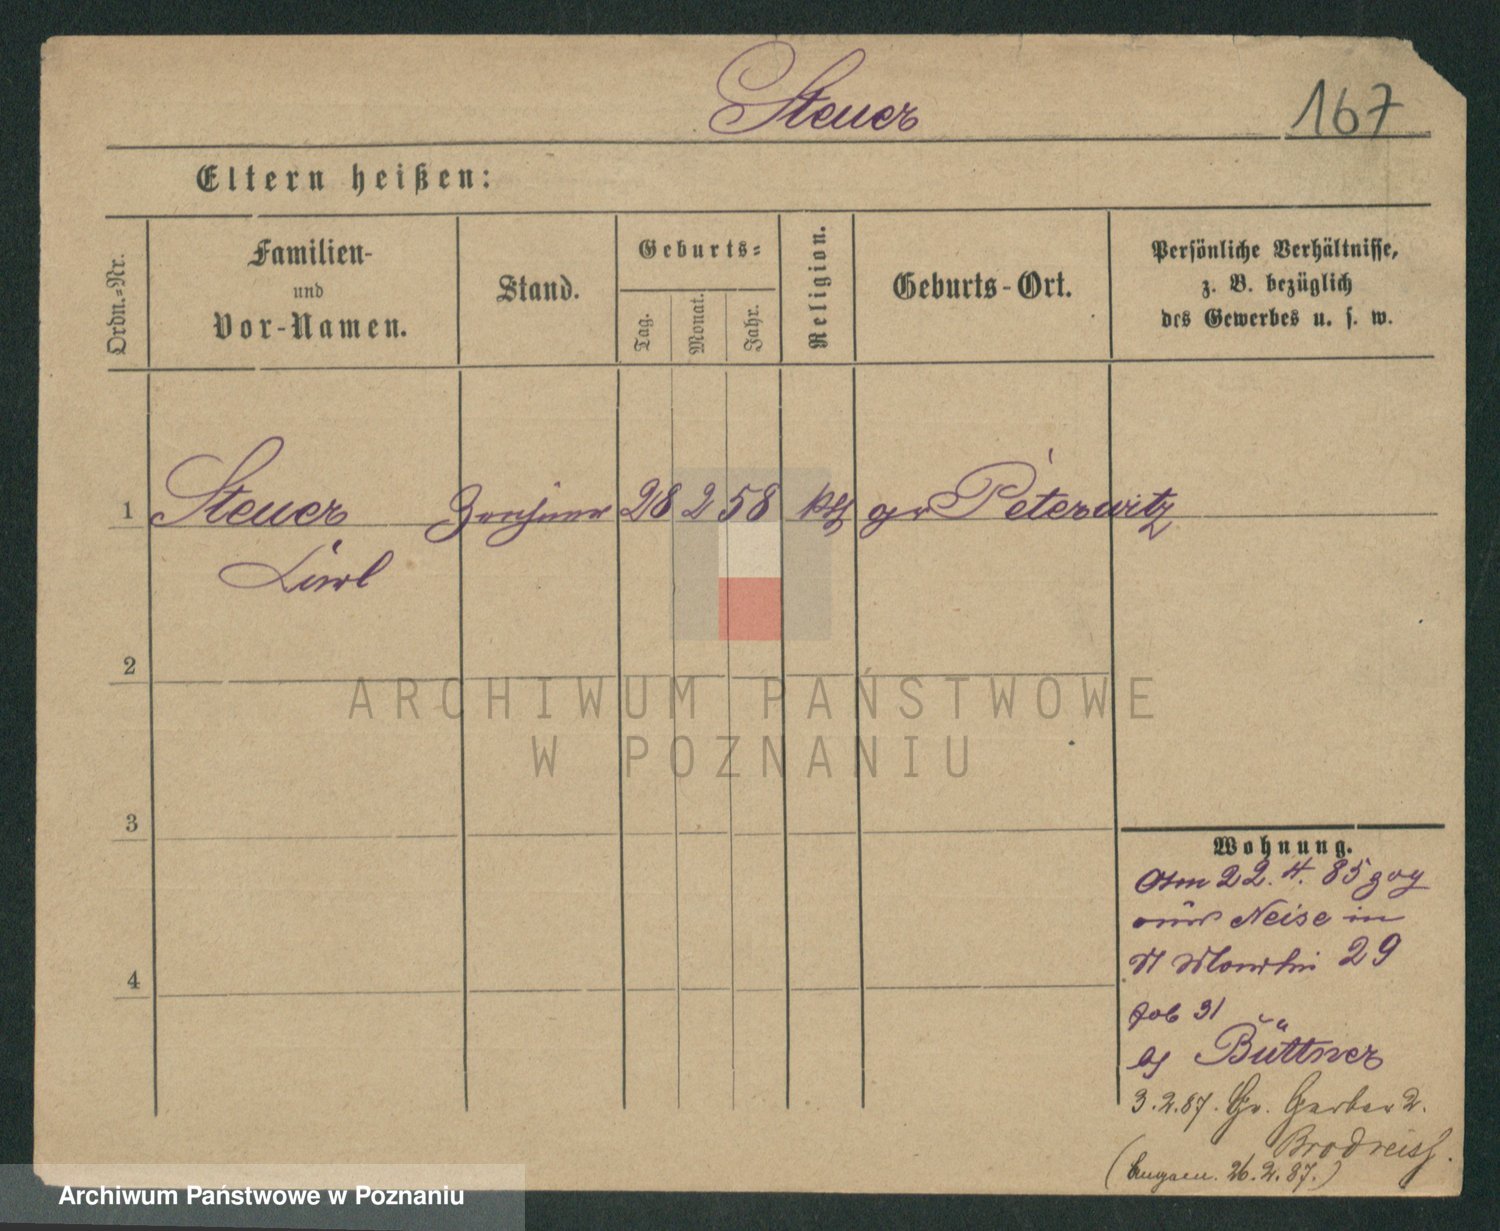 Steuer
167
Eltern heißen:
Ordn.-Nr.
Familien-
und
Vor-Namen.
Stand.
Geburts-
Tag.
Monat.
Jahr.
Religion.
Geburts-Ort.
Persönliche Verhältnisse,
z. B. bezüglich
des Gewerbes u. s. w.
1 Steuer 28 2 58 kth gr Peterwitz
2
3
4
ARCHIWUM PAŃSTWOWE
W POZNANIU
Wohnung.
Am 22. 4. 85 zog
aus Neise in
29
31
bei Büttner
3.2.87. Gr. Gerber 2.
Brodreiss.
26.2.87.)
Archiwum Państwowe w Poznaniu